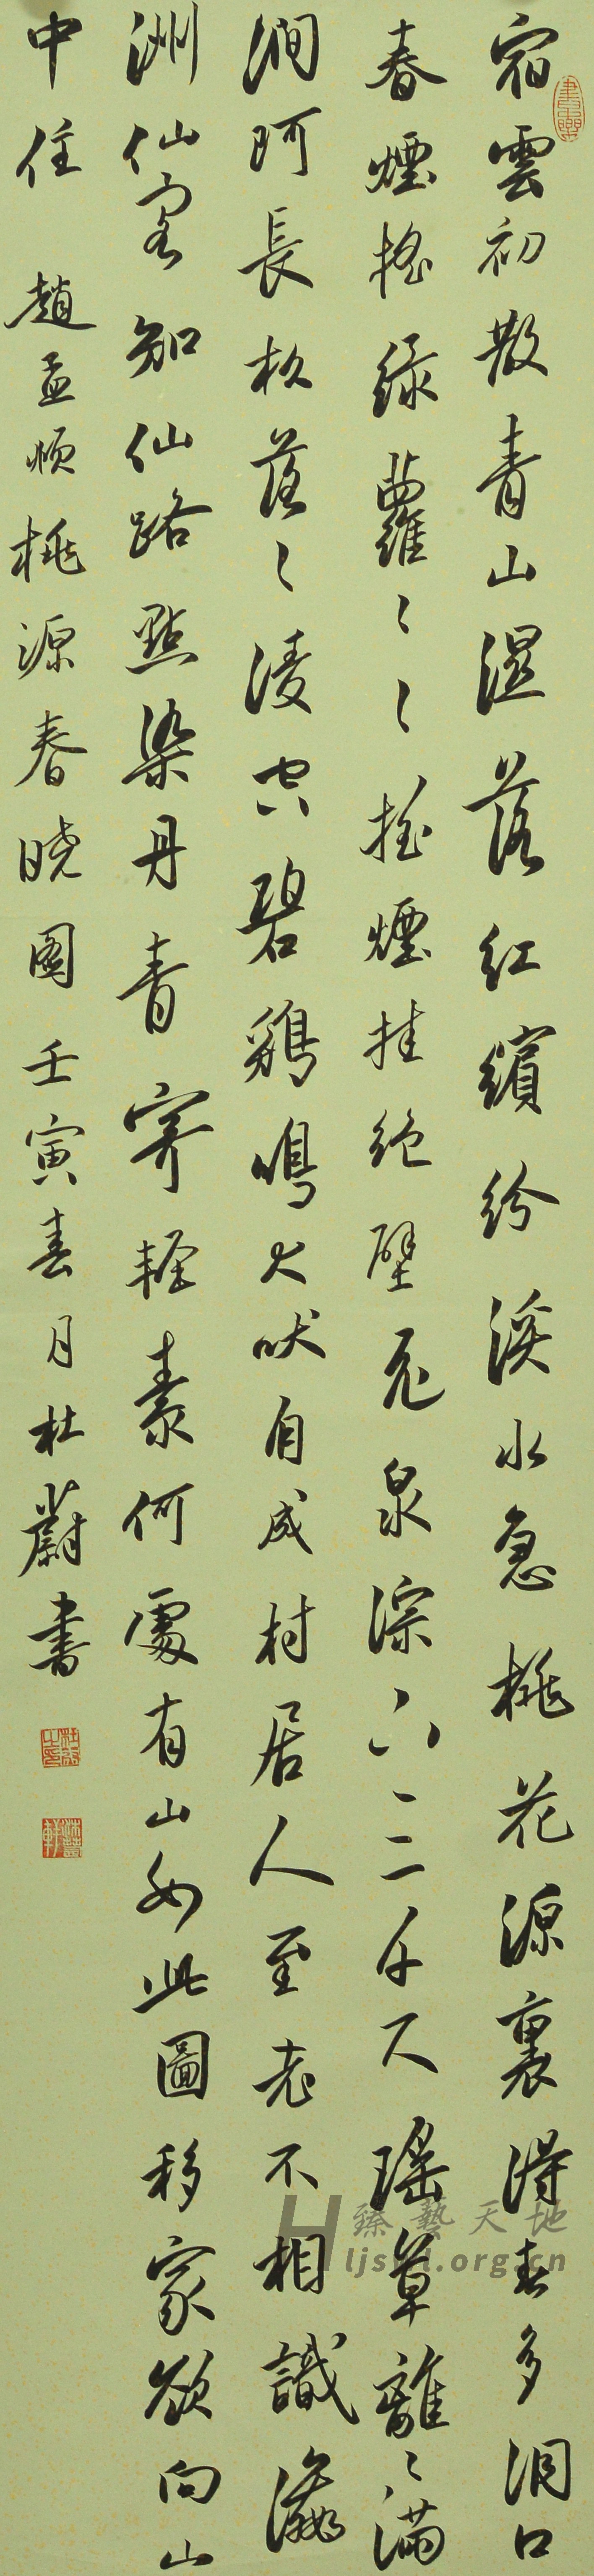 宿雲初散青山濕落紅繽紛溪水急桃花源裏得春多洞口
春煙搖綠蘿〻〻搖煙挂絕壁飛泉淙下三千尺瑤草離〻滿
澗阿長松落〻淩空碧鷄鳴犬吠自成村居人至老不相識瀛
洲仙客知仙路點染丹青寄輕素何處有山如此圖移家欲向山
中住 趙孟頫桃源春晓圖壬寅春月杜蔚書
臻藝天地